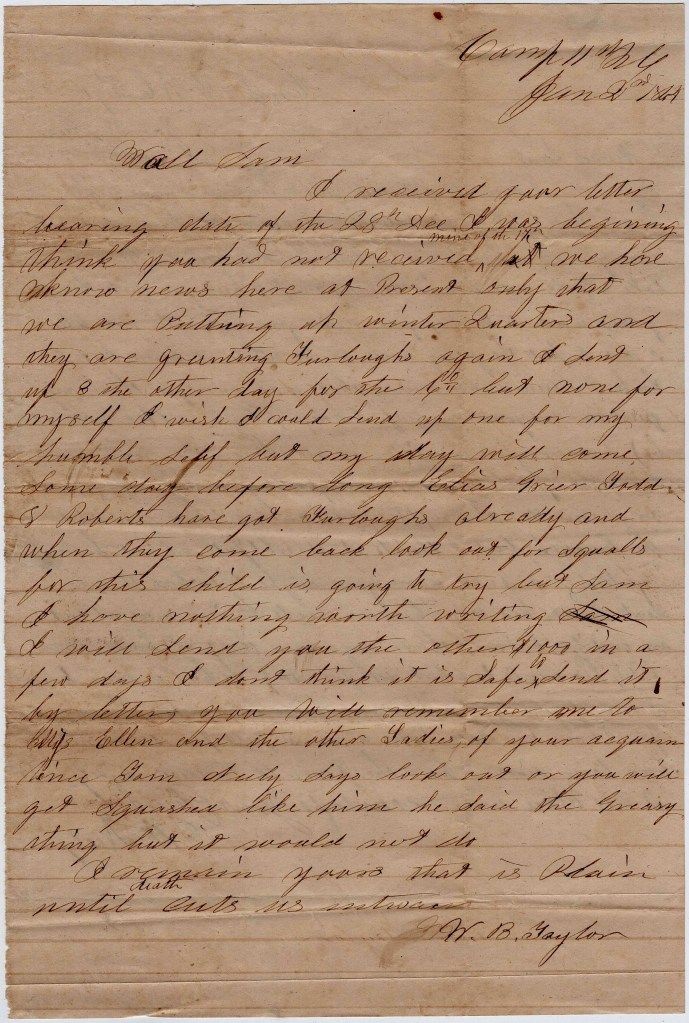 Camp 11th N C
Jan 2nd 1864
Well Sam
I received your letter
bearing date of the 28th Dec I was begining
think you had not received mine of the 1st but we have
know news here at Present only that
we are Putting up winter Quarters and
they are granting Furloughs again I sent
up 3 the other day for the Co but none for
myself I wish I could send up one for my
humble self but my day will come
some day before long Elias Grier Todd
& Roberts have got Furloughs already and
when they come back look out for Squalls
for this child is going to try but Sam
I have nothing worth writing Sam
I will send you the other $1000 in a
few days I dont think it is safe to send it
by letter you will remember me to
Miss Ellen and the other Ladies of your acquain
tince Tom Neely says look out or you will
get Squashed like him he said the Greasy
thing but it would not do
I remain yours that is Plain
until death cuts us intwain
W. B. Taylor